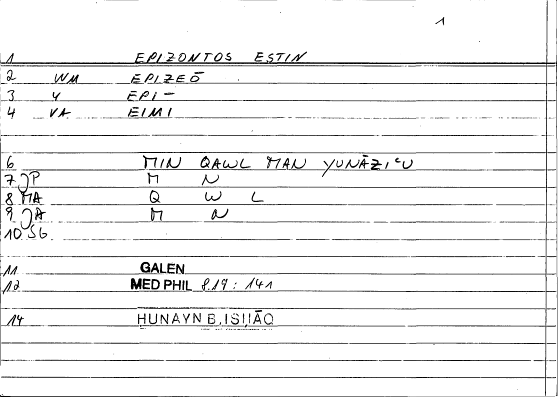 1
1 EPIZONTOS ESTIN
2 WM EPIZEŌ
3 Y EPI-
4 VA EIMI
6 MIN QAWL MAN YUNĀZIʿU
7 JP M N
8 MA Q W L
9 JA M N
10 SG.
11 GALEN
12 MED PHIL 8.19 : 141
14 HUNAYN B.ISḤĀQ